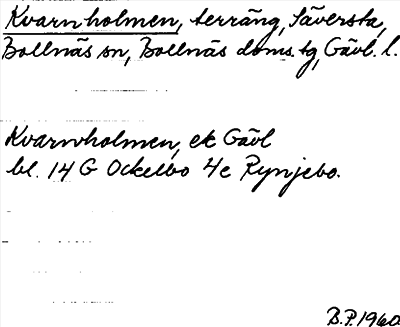 Kvarnholmen, terräng, Säversta,
Bollnäs sn, Bollnäs doms.tg, Gävl. l.
Kvarnholmen, ek Gävl
bl. 14 G Ockelbo 4e Rynjebo.
B.P. 1960